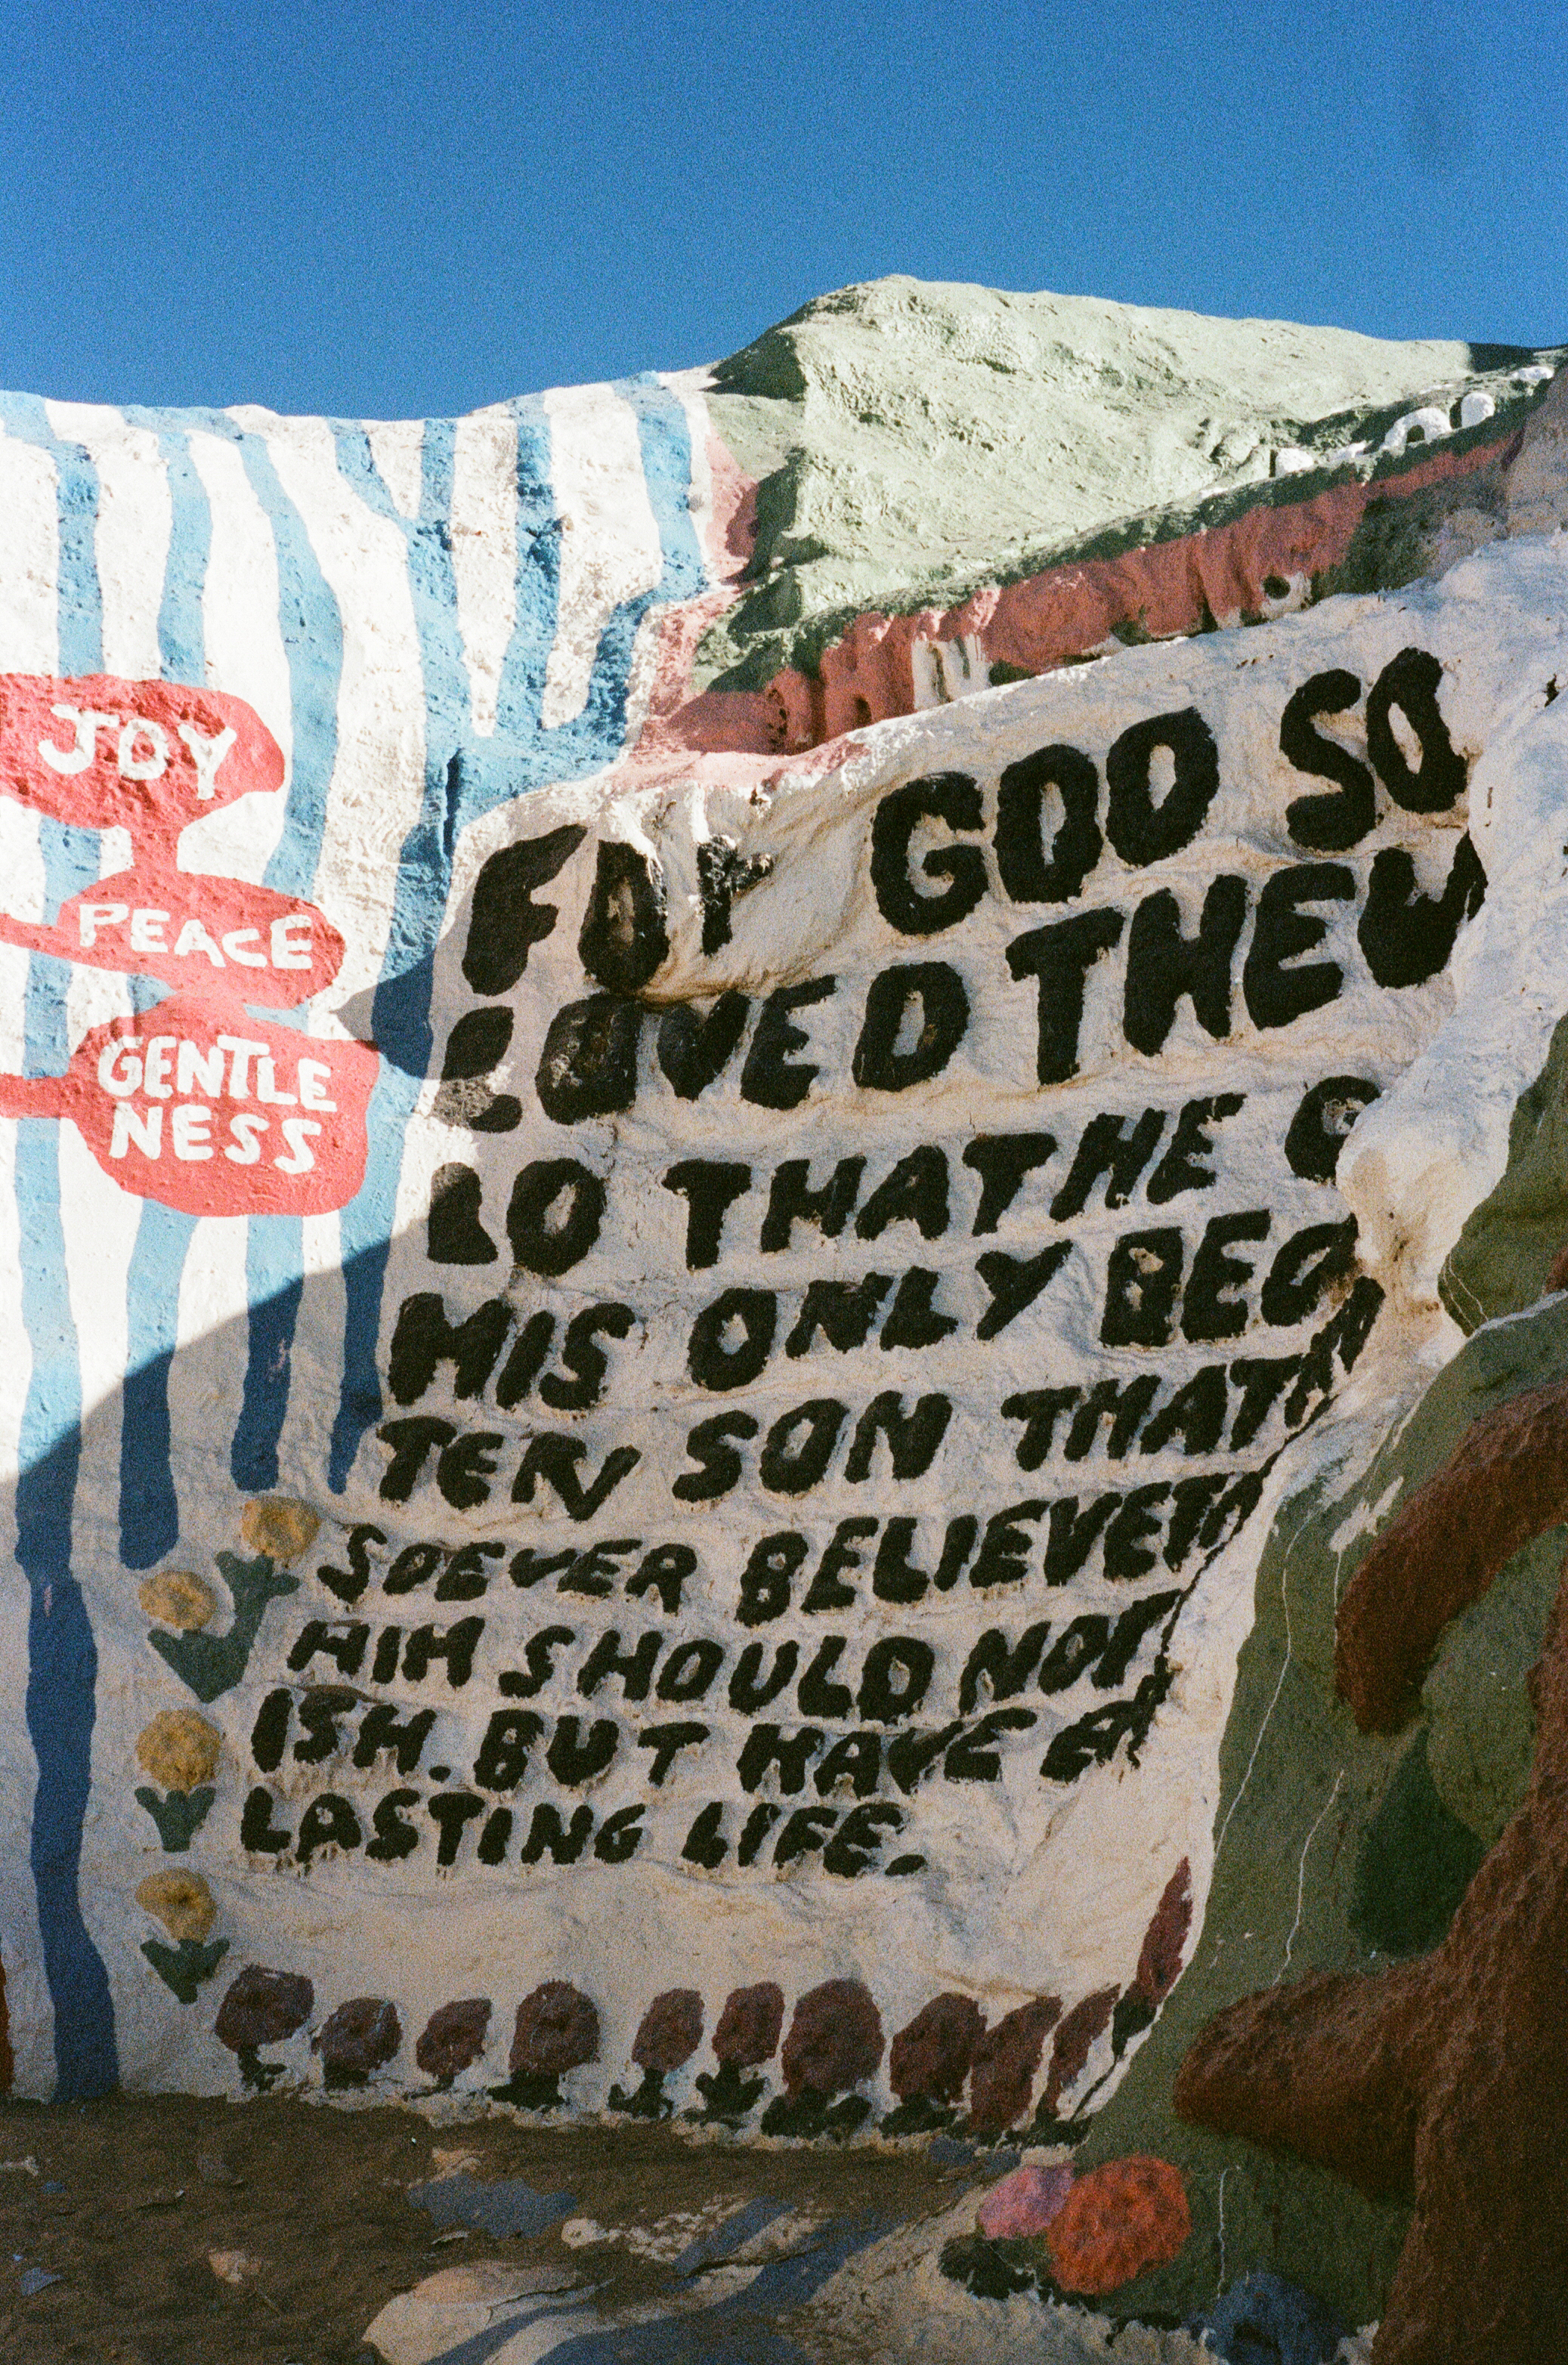 JOY
PEACE
GENTLE
NESS
FOR GOD SO
LOVED THE W
LD THAT HE G
HIS ONLY BEG
TEN SON THAT
SOEVER BELIEVETH
HIM SHOULD NOT
ISH. BUT HAVE E
LASTING LIFE.